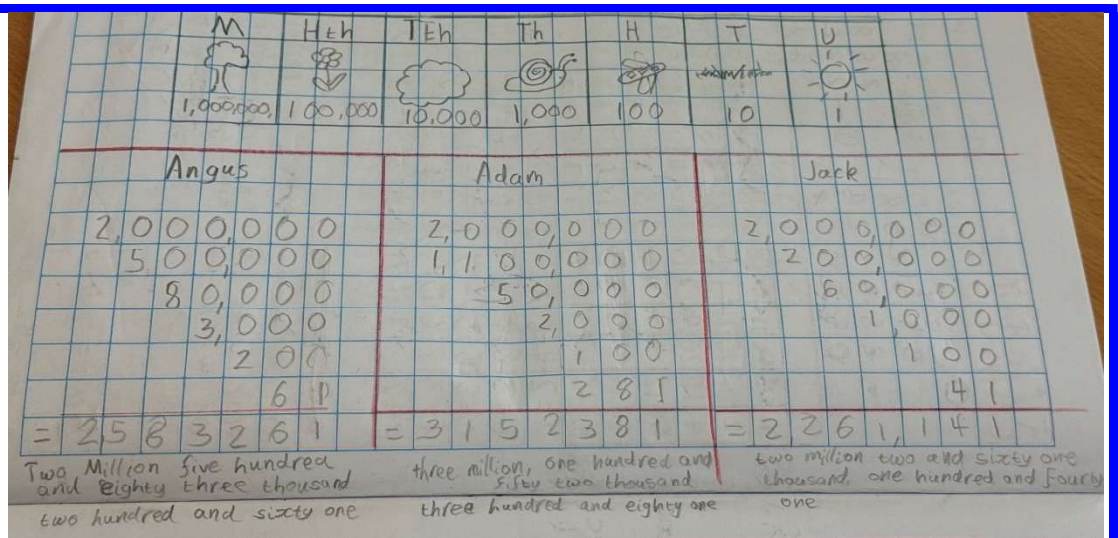 M HTh TTh Th H T U
1,000,000 100,000 10,000 1,000 100 10 1
Angus
2,000,000
500,000
80,000
3,000
200
61
= 2583261
Two Million five hundred
and eighty three thousand
two hundred and sixty one
Adam
2,000,000
1,100,000
50,000
2,000
100
281
= 3152381
three million, one hundred and
fifty two thousand
three hundred and eighty one
Jack
2,000,000
200,000
60,000
1,000
100
41
= 2261,141
two million two and sixty one
thousand, one hundred and fourty
one